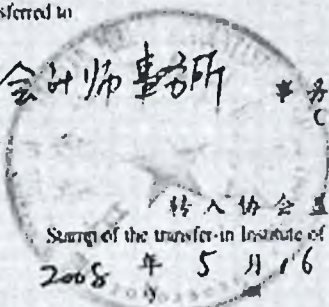 sferred to
会计师事务所 事务
转入协会盖
Stamp of the transfer-in Institute of
2008 年 5 月 16